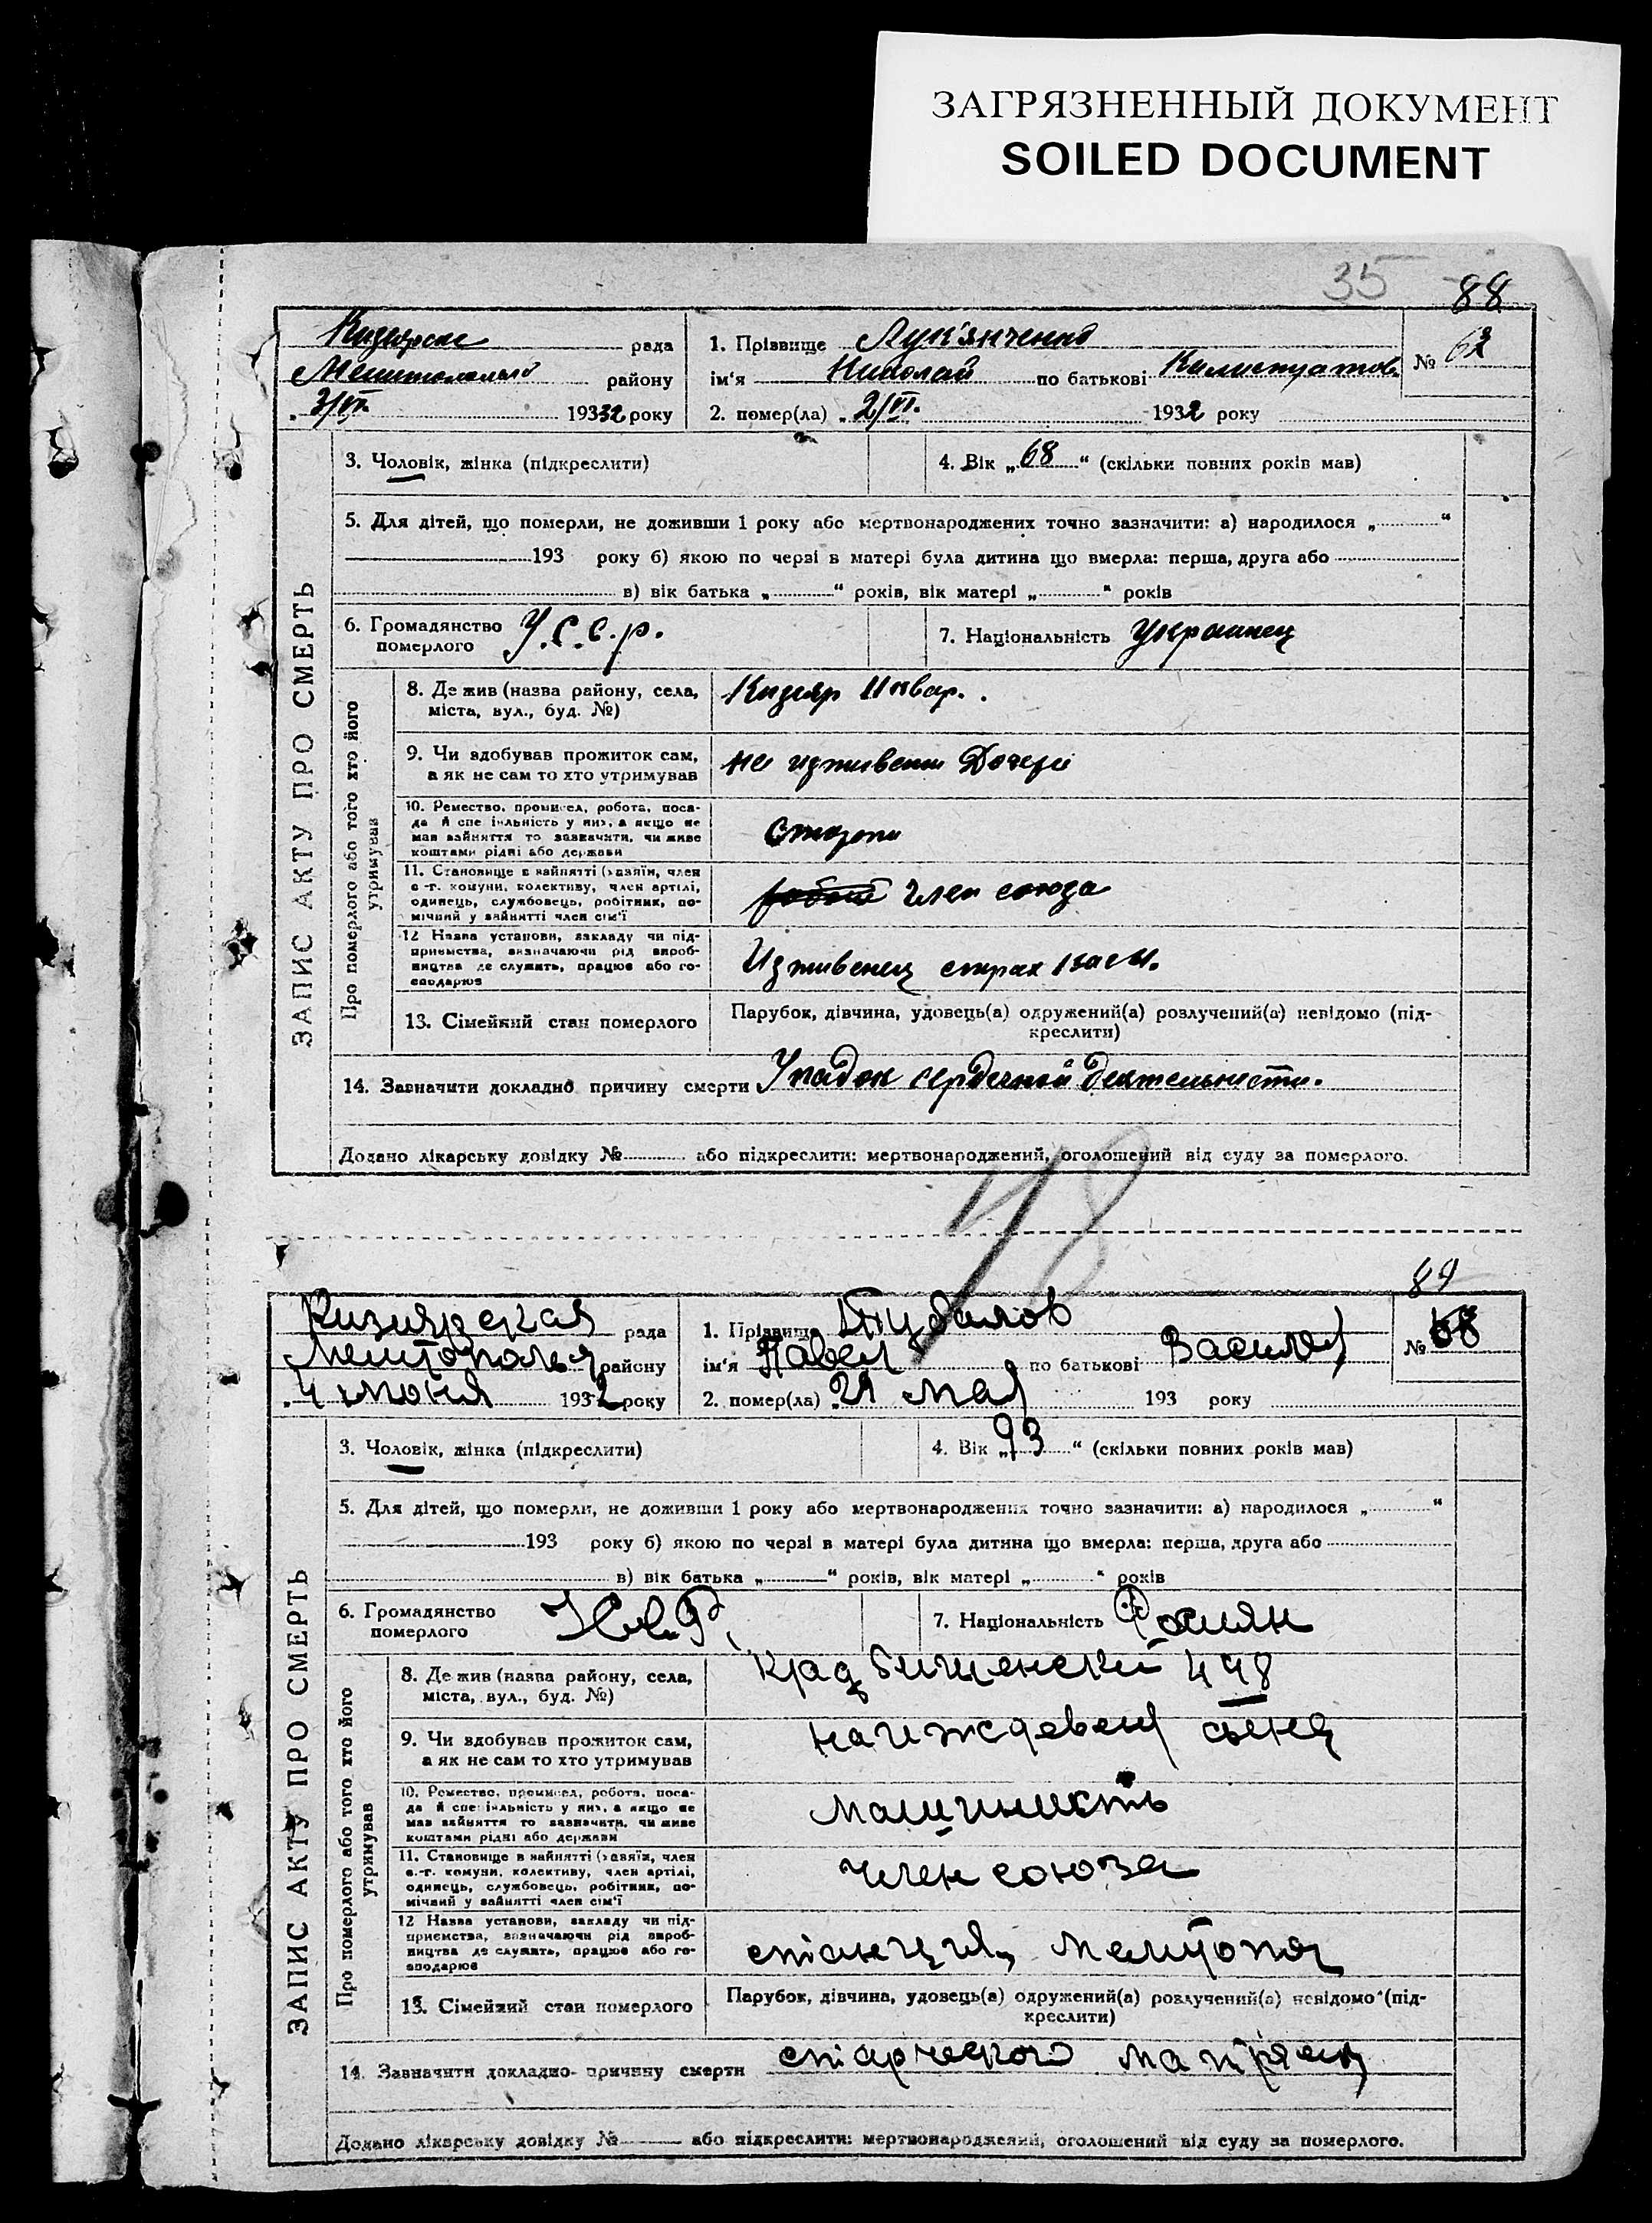 ЗАГРЯЗНЕННЫЙ ДОКУМЕНТ
SOILED DOCUMENT
35 88
рада 1. Прізвище Лук'янченко
Мелитопольско району ім'я Николай по батькові Калистратов. №
3/VI 19332 року 2. помер(ла) 2/VI. 1932 року
3. Чоловік, жінка (підкреслити) 4. Вік „68“ (скільки повних років мав)
5. Для дітей, що померли, не доживши 1 року або мертвонароджених точно зазначити: а) народилося „ “
193 року б) якою по черзі в матері була дитина що вмерла: перша, друга або
в) вік батька „ “ років, вік матері „ “ років
6. Громадянство померлого У.С.С.Р. 7. Національність Украинец
ЗАПИС АКТУ ПРО СМЕРТЬ
Про померлого або того хто його утримував
8. Де жив (назва району, села, Кизияр
міста, вул., буд. №)
9. Чи здобував прожиток сам, Дочері
а як не сам то хто утримував
10. Ремество, промисел, робота, поса-
да й спеціяльність у них, а якщо не
мав зайняття то зазначити, чи живе
коштами рідні або держави
11. Становище в зайнятті (хазяїн, член
с.-г. комуни, колективу, член артілі, член союза
одинець, службовець, робітник, по-
мічний у зайнятті член сім'ї
12 Назва установи, закладу чи під-
приємства, визначаючи рід вироб- Иживенец страх кассы.
ництва де служить, працює або го-
сподарює
13. Сімейний стан померлого Парубок, дівчина, удовець(а) одружений(а) розлучений(а) невідомо (під-
креслити)
14. Зазначити докладно причину смерти Упадок сердечной деятельности.
Додано лікарську довідку № або підкреслити: мертвонароджений, оголошений від суду за померлого.
18
89
Кизиярская рада 1. Прізвище
Мелитополья району ім'я Павел по батькові Василев № 68
4 июня 1932 року 2. помер(ла) 29 мая 193 року
3. Чоловік, жінка (підкреслити) 4. Вік „93“ (скільки повних років мав)
5. Для дітей, що померли, не доживши 1 року або мертвонароджених точно зазначити: а) народилося „ “
193 року б) якою по черзі в матері була дитина що вмерла: перша, друга або
в) вік батька „ “ років, вік матері „ “ років
6. Громадянство померлого 7. Національність Росиян
ЗАПИС АКТУ ПРО СМЕРТЬ
Про померлого або того хто його утримував
8. Де жив (назва району, села,
міста, вул., буд. №)
9. Чи здобував прожиток сам, на иждевец сына
а як не сам то хто утримував
10. Ремество, промисел, робота, поса-
да й спеціяльність у них, а якщо не машинистъ
мав зайняття то зазначити, чи живе
коштами рідні або держави
11. Становище в зайнятті (хазяїн, член
с.-г. комуни, колективу, член артілі, член союза
одинець, службовець, робітник, по-
мічний у зайнятті член сім'ї
12 Назва установи, закладу чи під-
приємства, визначаючи рід вироб-
ництва де служить, працює або го- станция Мелитопол
сподарює
13. Сімейний стан померлого Парубок, дівчина, удовець(а) одружений(а) розлучений(а) невідомо (під-
креслити)
14. Зазначити докладно причину смерти
Додано лікарську довідку № або підкреслити: мертвонароджений, оголошений від суду за померлого.